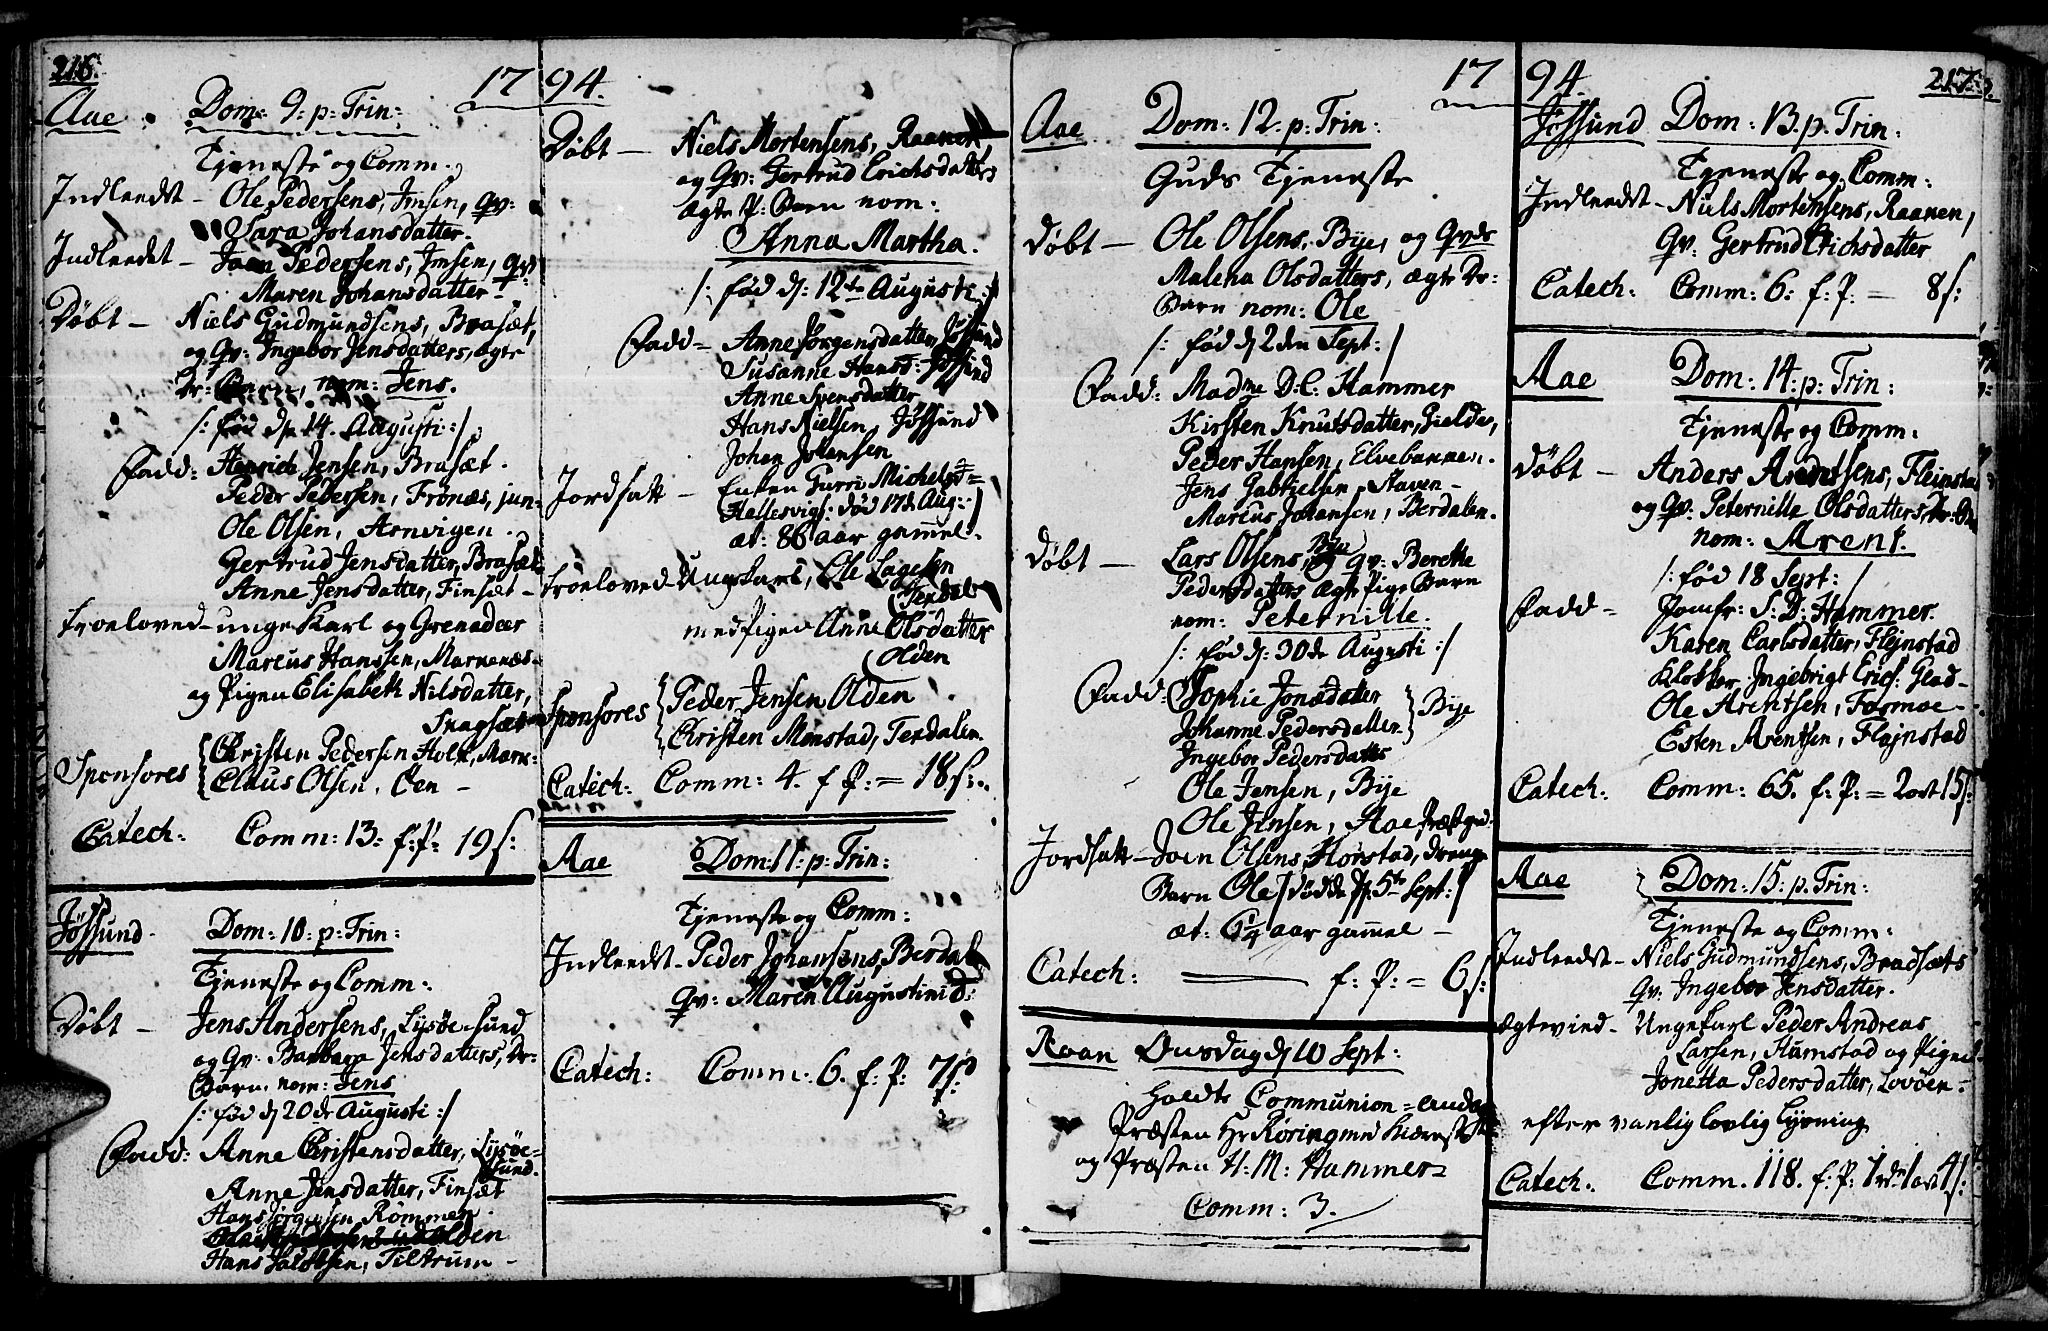 216.
1794.
Aae. Dom: 9. p: Trin:
Tjeneste og Comm.
Indleedt - Ole Pedersens, Imsen, qv:
Sara Johansdatter.
Indleedet - Joen Pedersens, Imsen, qv
Maren Johansdatter -
Døbt - Niels Gudmundsens, Brasæt,
og Qv: Ingebor Jensdatters, ægte
Dr: Barn, nom: Jens.
/: fød d. 14. Augusti :/
Fadd: Henrich Jensen, Brasæt.
Peder Pedersen, Fronæs, jun.
Ole Olsen, Arnvigen.
Gertrud Jensdatter, Brasæt
Anne Jensdatter, Finsæt -
Troeloved - unge Karl og Grenadeer
Marcus Hanssen, Marnenæs
og Pigen Elisabeth Nilsdatter,
Sponsores { Christen Pedersen Holt, Marn:
Claus Olsen, Øen -
Catech: Comm: 13: f: P: 19 s:
Jøssund. Dom: 10: p: Trin:
Tjeneste og Comm:
Døbt - Jens Andersens, Lysøesund
og Qv: Barbara Jensdatters, Dr:
Barn. nom: Jens
/: fød d 20de Augusti :/
Fadd: Anne Christensdatter, Lysøe-
sund.
Anne Jensdatter, Finsæt
Hans Jørgensen, Rømmen.
Olden
Hans Jacobsen, Tiltrum -
Døbt - Niels Mortensens, Raanen,
og Qv: Gertrud Erichsdatters
ægte P: Barn nom:
Anna Martha.
/: fød d: 12te Augusti :/
Fadd - Anne Jørgensdatter, Jøssund
Susanne Hansd: Jøssund
Anne Svensdatter
Hans Nielsen, Jøssund
Johan Johansen
Jordsatt - Enken Gurri Michelsd:
Hellesvig: død 17de Aug:
æt: 86 aar gammel.
Troeloved Ungekarl, Ole Lagesen
Terdal
med Pigen Anne Olsdatter
Olden
Sponsores { Peder Jensen Olden
Christen Monstad, Terdalen.
Catech: Comm: 4. f P: = 18 s:
Aae Dom: 11: p: Trin:
Tjeneste og Comm:
Indleedt - Peder Johansens, Berdal
qv: Maren Augustini d:
Catech: Comm: 6. f: P: 7 s:
1794.
217.
Aae Dom: 12. p: Trin:
Guds Tjeneste
Døbt - Ole Olsens, Bye, og Qvds
Malena Olsdatters, ægte Dr:
Barn nom: Ole
/: fød d 2den Sept: /
Fadd: Madme D: C: Hammer
Kirsten Knutsdatter, Gielde,
Peder Hansen, Elvebakken.
Jens Gabrielsen, Haven -
Marcus Johansen, Berdalen.
Døbt - Lars Olsens, Bye og qv: Berethe
Pedersdatters ægte Pige Barn
nom: Peternille.
/: fød d: 30de Augusti :/
Fadd: Sophie Jonsdatter,
Johanne Pedersdatter } Bye
Ingebor Pedersdatter
Ole Jensen, Bye
Ole Jensen, Aae Præstgrd:
Jordsatt - Joen Olsens, Horstad, Drenge
Barn Ole / døde d: 5te Sept: /
æt: 6 1/4 aar gammel -
Catech: f: P: = 6 s:
Roan Onsdag d 10 Sept:
holdte Communion
Præsten Hr Røring med
og Præsten H: M: Hammer
Comm: 3.
Jøssund Dom: 13. p. Trin:
Tjeneste og Comm:
Indleedt - Niels Mortensens, Raanen,
Qv. Gertrud Erichsdatter
Catech: Comm: 6: f: P: - 8 s:
Aae Dom: 14: p: Trin:
Tjeneste og Comm.
Døbt - Anders Arentsens, Fleinstad
og Qv: Peternille Olsdatters, Dr: Barn
nom: Arent.
/: fød 18 Sept: /
Fadd - Jomfr: S: D: Hammer.
Karen Carlsdatter, Flejnstad
Klokker Ingebrigt Erics: Glad -
Ole Arentsen, Formoe -
Esten Arentsen, Flejnstad
Catech: Comm: 65. f: P: = 2 ort 15 s:
Aae Dom: 15: p. Trin:
Tjeneste og Comm:
Indleedt - Niels Gudmundsens, Bradsæts
Qv: Ingebor Jensdatter.
Ægtevied - Ungekarl Peder Andreas
Larsen, Humstad og Pigen
Jonetta Pedersdatter, Lovøen -
efter vanlig lovlig lysning
Catech: Comm. 118. f: P: 1 rd 1 ort 4 s: